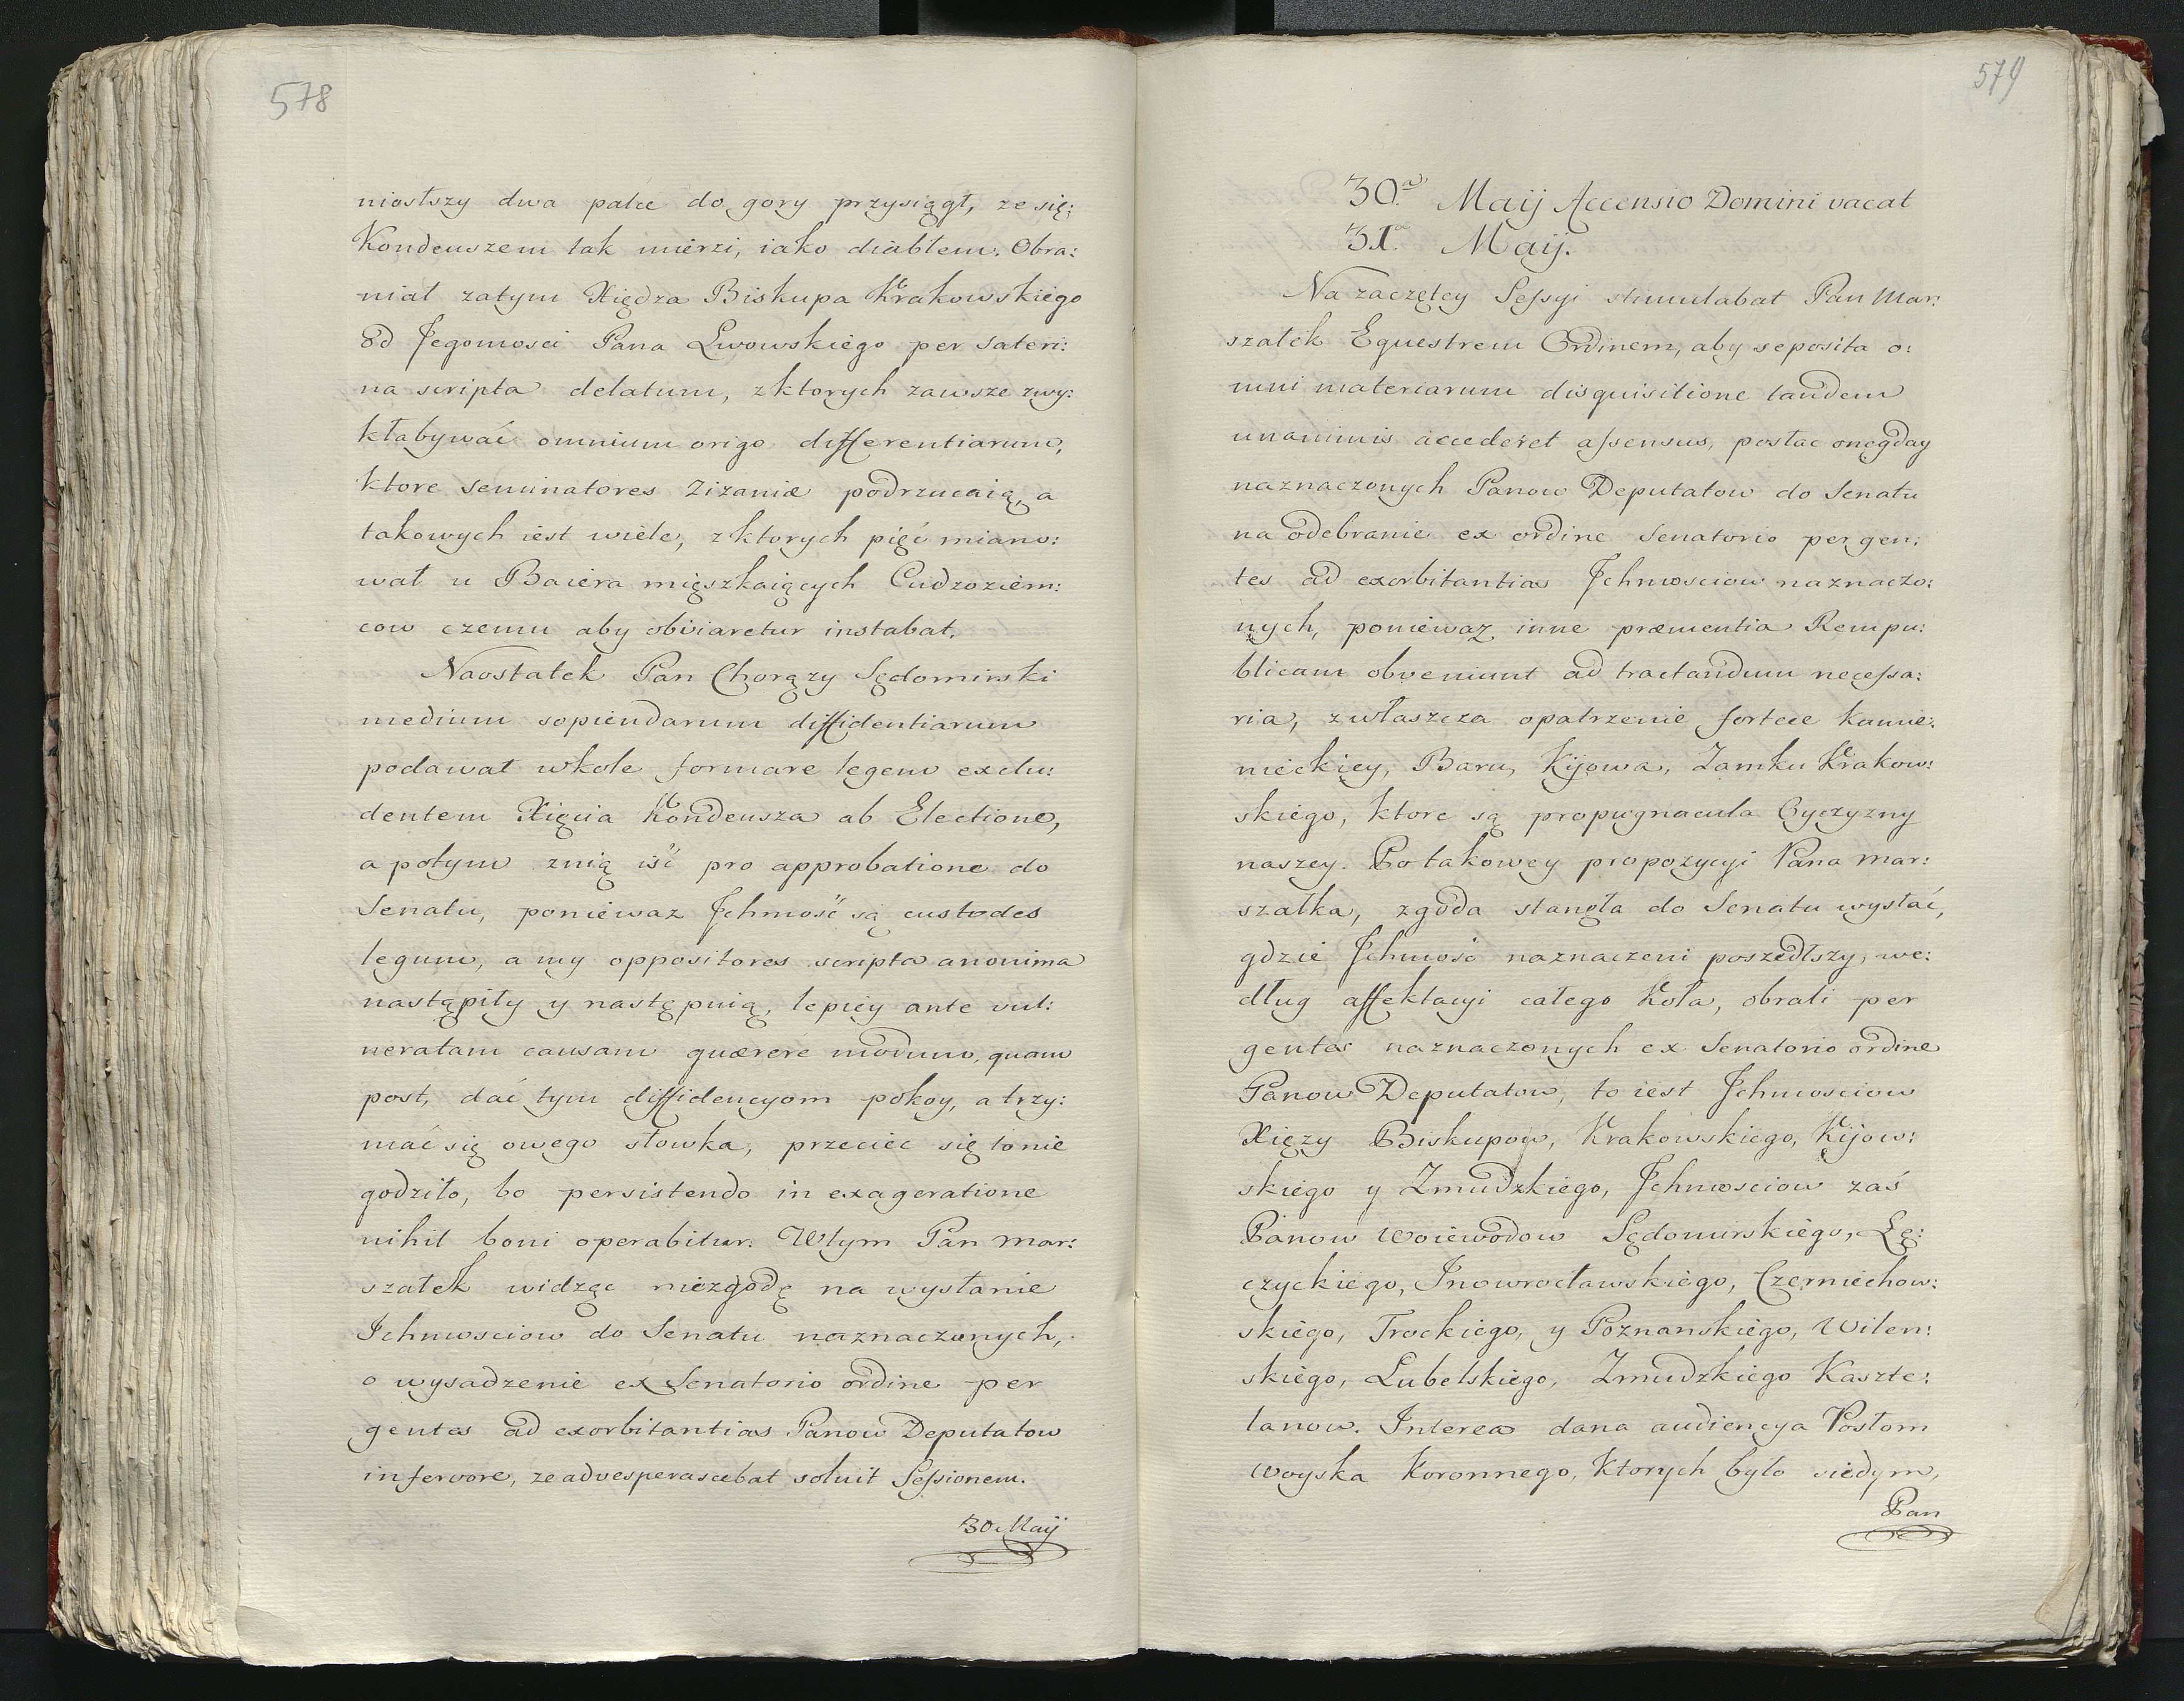 578
niosłszy dwa palce do gory przysiągł, ze się:
Kondeuszem tak mierzi, iako diabłem. Obra:
niał zatym Xiędza Biskupa Krakowskiego
od Jegomosci Pana Lwowskiego per sateri:
na scripta delatum, z ktorych zawsze zwy:
kłabywać omnium origo differentiarum,
ktore seminatores Zizaniæ podrzucaią, a
takowych iest wiele, z ktorych pięć miano:
wał u Baiera mięszkaiących Cudzoziem:
cow czemu aby obviaretur instabat.
Naostatek Pan Chorązy Sędomirski
medium sopiendarum diffidentiarum
podawał wkole formare legem exclu:
dentem Xięcia Kondeusza ab Electione,
a potym znią iść pro approbatione do
Senatu, poniewaz Ichmość są custodes
legum, a my oppositores scripta anonima
nastąpiły y następuią, lepiey ante vul:
neratam causam quærere modum, quam
post, dać tym diffidencyom pokoy, a trzy:
mać się owego słowka, przeciec się to nie
godziło, bo persistendo in exageratione
nihil boni operabitur. Wtym Pan Mar:
szałek widząc niezgodę na wysłanie
Ichmosciow do Senatu naznaczonych,
o wysadzenie ex Senatorio ordine per
gentes ad exorbitantias Panow Deputatow
in fervore, ze advesperascebat soluit Sessionem.
30 Maij
579
30.ª Maij Accensio Domini vacat
31.ª Maij.
Na zaczętey Sessyi stimulabat Pan Mar:
szałek Equestrem Ordinem, aby seposita o:
mni materiarum disquisitione tandem
unanimis accederet assensus, posłac onegday
naznaczonych Panow Deputatow do Senatu
na odebranie ex ordine Senatorio pergen:
tes ad exorbitantias Ichmosciow naznaczo:
nych, poniewaz inne præmentia Rempu:
blicam obveniunt ad tractandum necessa:
ria, zwłaszcza opatrzenie fortece Kamie:
nieckiey, Baru, Kijowa, Zamku Krakow:
skiego, ktore są propugnacula Oyczyzny
naszey. Po takowey propozycyi Pana Mar:
szałka, zgoda stanęła do Senatu wysłać,
gdzie Ichmość naznaczeni poszedłszy, we:
dług affektacyi całego Koła, obrali per
gentes naznaczonych ex Senatorio ordine
Panow Deputatow, to iest Ichmosciow
Xięzy Biskupow, Krakowskiego, Kijow:
skiego y Zmudzkiego, Ichmosciow zaś
Panow Woiewodow Sędomirskiego, Łę:
czyckiego, Inowrocławskiego, Czerniechow:
skiego, Trockiego, y Poznanskiego, Wilen:
skiego, Lubelskiego, Zmudzkiego Kaszte:
lanow. Interea dana audiencya Posłom
woyska Koronnego, Ktorych było siedym,
Pan